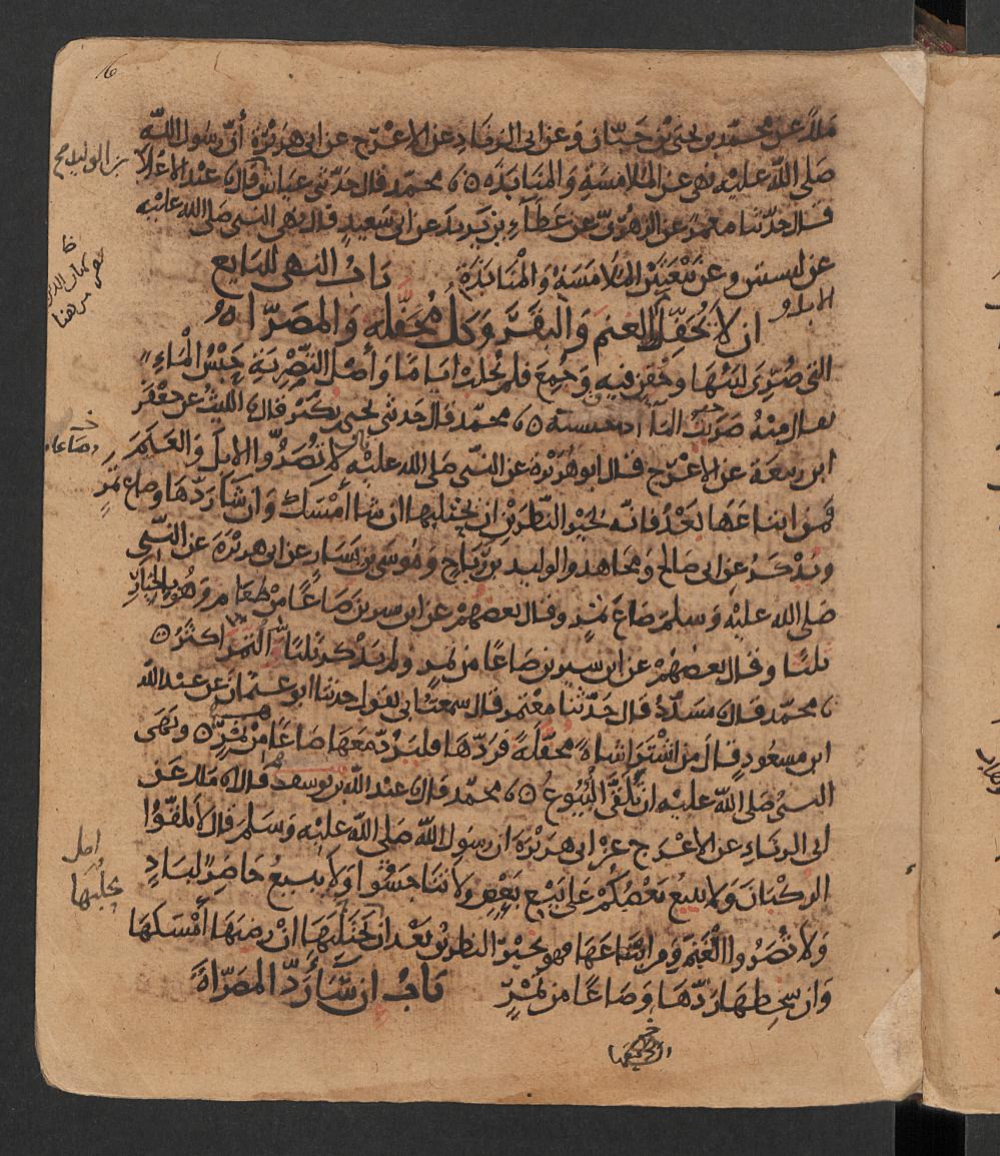 ملك عن محمد بن يحيى بن حبان وعن ابي الزناد عن الاعرج عن ابي هريرة أن رسول الله
صلى الله عليه نهى عن الملامسة والمنابذة ٥ محمد قال حدثني عياش قال عبد الاعلا
بن الوليد صح
قال حدثنا معمر عن الزهري عن عطاء بن يزيد عن ابي سعيد قال نهى النبي صلى الله عليه
عن لبستين وعن بيعتين الملامسة والمنابذة باب النهي للبايع
ان لا يحفل الابل و الغنم والبقر وكل محفلة والمصراه
التي صري لبنها وحقن فيه وجمع فلم يحلب اياما وأصل التصرية حبس الماء
يقال منه صريت الما اذا حبسته ٥ محمد قال حدثني يحيى بن بكير قال الليث عن جعفر
ابن ربيعة عن الاعرج قال ابو هريرة عن النبي صلى الله عليه لا تصروا الابل والغنم
فمن ابتاعها بعد فانه بخير النظرين ان يحتلبها ان شا أمسك وان شا ردها وصاع تمر
وصاعا
ويذكر عن ابي صالح ومجاهد والوليد بن رباح وموسى بن يسار عن ابي هريرة عن النبي
صلى الله عليه وسلم صاع تمر وقال بعضهم عن ابن سيرين صاعا من طعام وهو بالخيار
ثلثا وقال بعضهم عن ابن سيرين صاعا من تمر ولم يذكر ثلثا والتمر اكثر ٥
محمد قال مسدد قال حدثنا معتمر قال سمعت ابي يقول حدثنا ابو عثمان عن عبد الله
ابن مسعود قال من اشترا شاة محفلة فردها فليرد معها صاعا من تمر ٥ ونهى
النبي صلى الله عليه ان تلقى البيوع ٥ محمد قال عبد الله بن يوسف قال ملك عن
ابي الزناد عن الاعرج عن ابي هريرة ان رسول الله صلى الله عليه وسلم قال لا تلقوا
الركبان ولا يبيع بعضكم على بيع بعض ولا تناجشوا ولا يبيع حاضر لباد
ولا تصروا الغنم ومن ابتاعها فهو بخير النظرين بعد ان يحتلبها ان رضيها أمسكها
اصل
يحلبها
وان سخطها ردها وصاعا من تمر باب ان شا رد المصراة